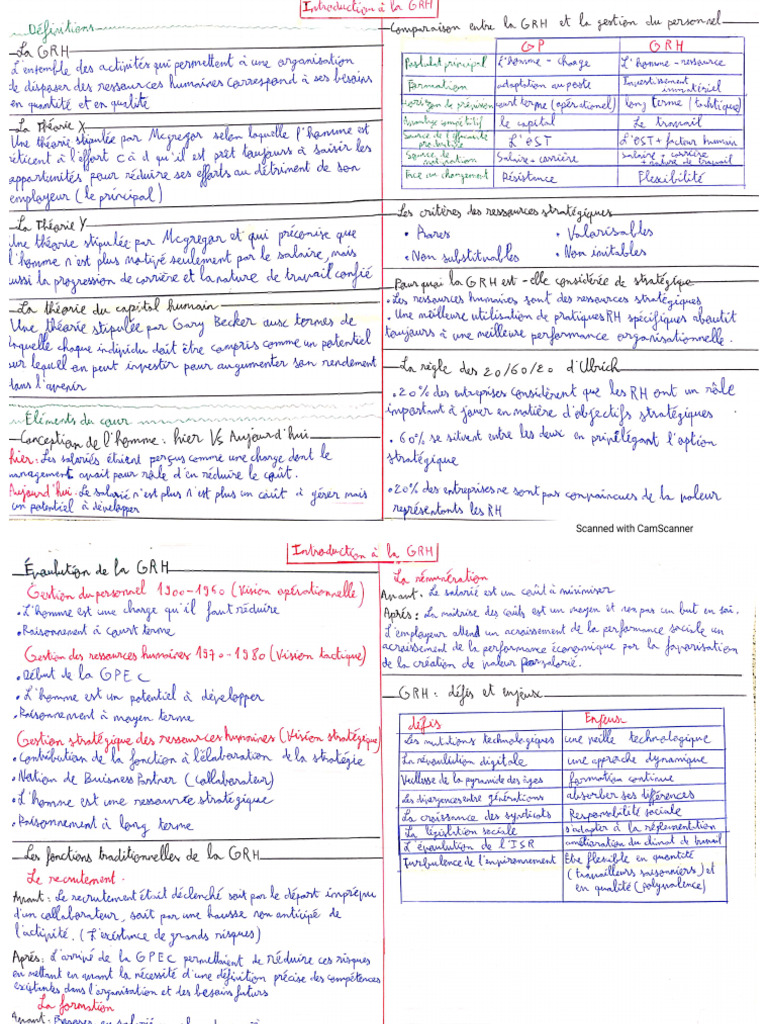 Introduction à la GRH
Définitions
La GRH
L'ensemble des activités qui permettent à une organisation
de disposer des ressources humaines correspond à ses besoins
en quantité et en qualité
La Théorie X
Une théorie stipulée par Mcgregor selon laquelle l'homme est
réticent à l'effort c à d qu'il est prêt toujours à saisir les
opportunités pour réduire ses efforts au détriment de son
employeur (le principal)
La Théorie Y
Une théorie stipulée par Mcgregor et qui préconise que
l'homme n'est plus motivé seulement par le salaire, mais
aussi la progression de carrière et la nature de travail confié
La théorie du capital humain
Une théorie stipulée par Gary Becker aux termes de
laquelle chaque individu doit être compris comme un potentiel
sur lequel on peut investir pour augmenter son rendement
dans l'avenir
Eléments du cour
Conception de l'homme : hier VS Aujourd'hui
hier : Les salariés étaient perçus comme une charge dont le
management avait pour rôle d'en réduire le coût.
Aujourd'hui : Le salarié n'est plus n'est plus un coût à gérer mais
un potentiel à développer
Comparaison entre la GRH et la gestion du personnel
GP GRH
Postulat principal L'homme - charge L'homme - ressource
Formation adaptation au poste Investissement immatériel
Horizon de prévision court terme (opérationel) long terme (tactique)
Avantage compétitif le capital Le travail
Source de l'efficacité productive L'OST L'OST + facteur humain
Source de motivation Salaire + carrière salaire + carrière + nature de travail
Face au changement Résistance Flexibilité
Les critères des ressources stratégiques
• Rares • Valorisables
• Non substituables • Non imitables
Pourquoi la GRH est-elle considérée de stratégique
• Les ressources humaines sont des ressources stratégiques
• Une meilleure utilisation de pratiques RH spécifiques aboutit
toujours à une meilleure performance organisationnelle.
La règle des 20/60/20 d'Ulrich
• 20% des entreprises considèrent que les RH ont un rôle
important à jouer en matière d'objectifs stratégiques
• 60% se situent entre les deux en privilégiant l'option
stratégique
• 20% des entreprises ne sont pas convaincues de la valeur
représentants les RH
Scanned with CamScanner
Introduction à la GRH
Évoulution de la GRH
Gestion du personnel 1900-1960 (Vision opérationnelle)
• L'homme est une charge qu'il faut réduire
• Raisonnement à court terme
Gestion des ressources humaines 1970-1980 (Vision tactique)
• Début de la GPEC
• L'homme est un potentiel à développer
• Raisonnement à moyen terme
Gestion stratégique des ressources humaines (Vision stratégique)
• Contribution de la fonction à l'élaboration de la stratégie
• Notion de Buisness Partner (collaborateur)
• L'homme est une ressource stratégique
• Raisonnement à long terme
Les fonctions traditionnelles de la GRH
Le recrutement.
Avant : Le recrutement était déclenché soit par le départ imprévu
d'un collaborateur, soit par une hausse non anticipé de
l'activité. (L'existence de grands risques)
Après : L'arrivé de la GPEC permettent de réduire ces risques
en mettant en avant la nécessité d'une définition précise des compétences
existantes dans l'organisation et des besoins futurs
La formation
La rémunération
Avant : Le salarié est un coût à minimiser
Après : La maîtrise des coûts est un moyen et non pas un but en soi.
L'employeur attend un acraissement de la performance sociale un
acraissement de la performance économique par la favorisation
de la création de valeur par salarié.
GRH : défis et enjeux
défis Enjeux
Les mutations technologiques une veille technologique
La révoulution digitale une approche dynamique
Vieillesse de la pyramide des âges formation continue
Les divergences entre générations absorber ses différences
La croissance des syndicats Responsabilité sociale
La législation sociale s'adapter à la réglementation
L'évoulution de l'ISR amélioration du climat de travail
Turbulence de l'environnement Être flexible en quantité
(travailleurs saisonniers) et
en qualité (polyvalence)